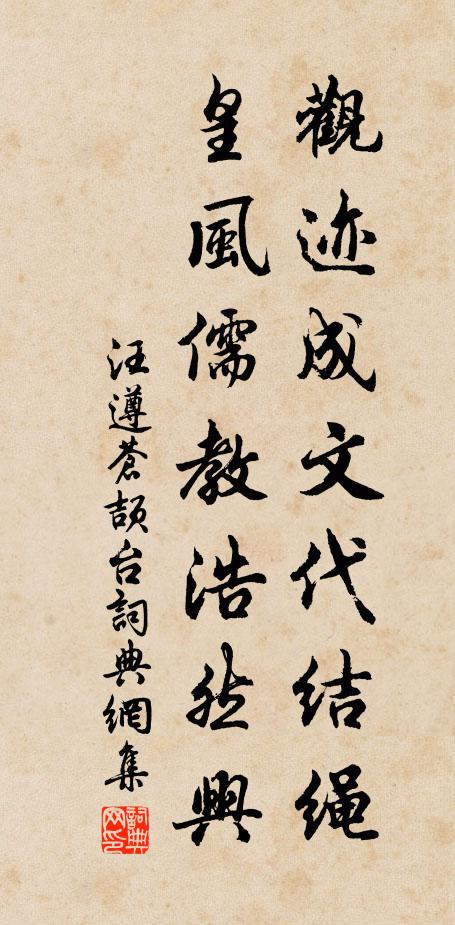 觀迹成文代结绳
皇風儒教浩然興
汪遵蒼頡台詞典網集
詞典网印